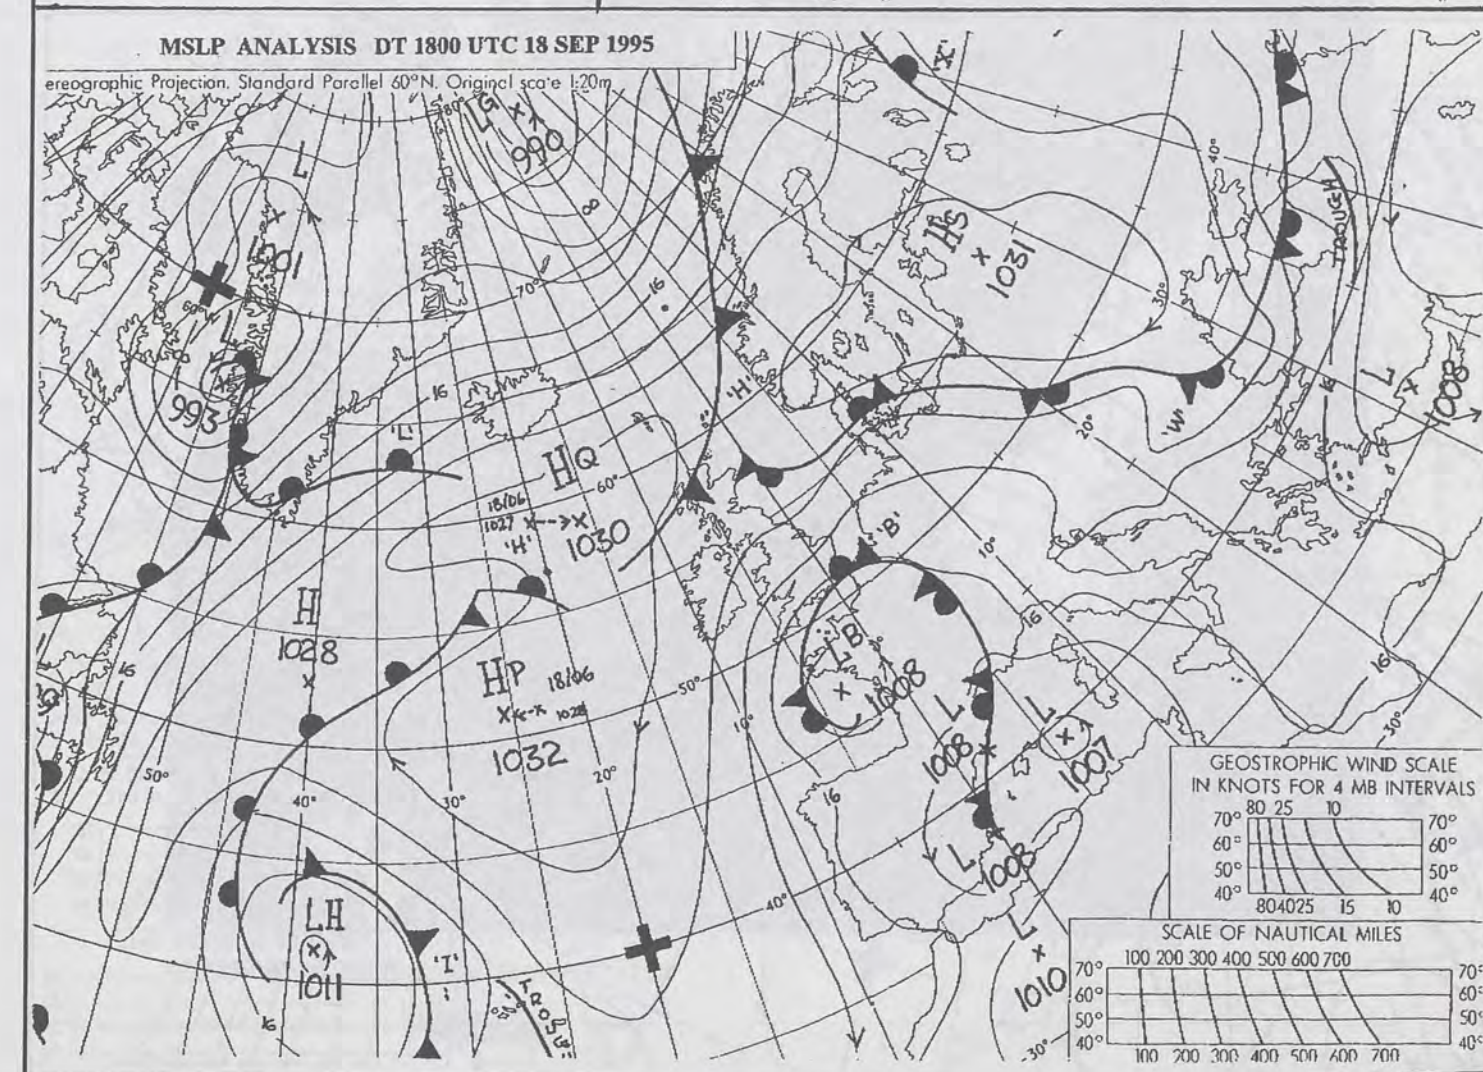 MSLP ANALYSIS DT 1800 UTC 18 SEP 1995
ereographic Projection. Standard Parallel 60°N. Original scale 1:20m
80°
LG
990
'X'
40°
TROUGH
L
1001
HS
1031
30°
70°
16
60°
L
993
16
'L'
'H'
HQ
18/06
1027
'H'
1030
60°
20°
'W'
L
1008
16
'B'
10°
H
1028
16
HP
18/06
1028
1032
50°
10°
LB
1008
16
L
1008
L
1007
16
30°
50°
40°
30°
20°
16
L
1008
40°
LH
1011
'I'
16
TROUGH
L
1010
30°
GEOSTROPHIC WIND SCALE
IN KNOTS FOR 4 MB INTERVALS
80 25 10
70° 70°
60° 60°
50° 50°
40° 40°
80 40 25 15 10
SCALE OF NAUTICAL MILES
100 200 300 400 500 600 700
70° 70°
60° 60°
50° 50°
40° 40°
100 200 300 400 500 600 700